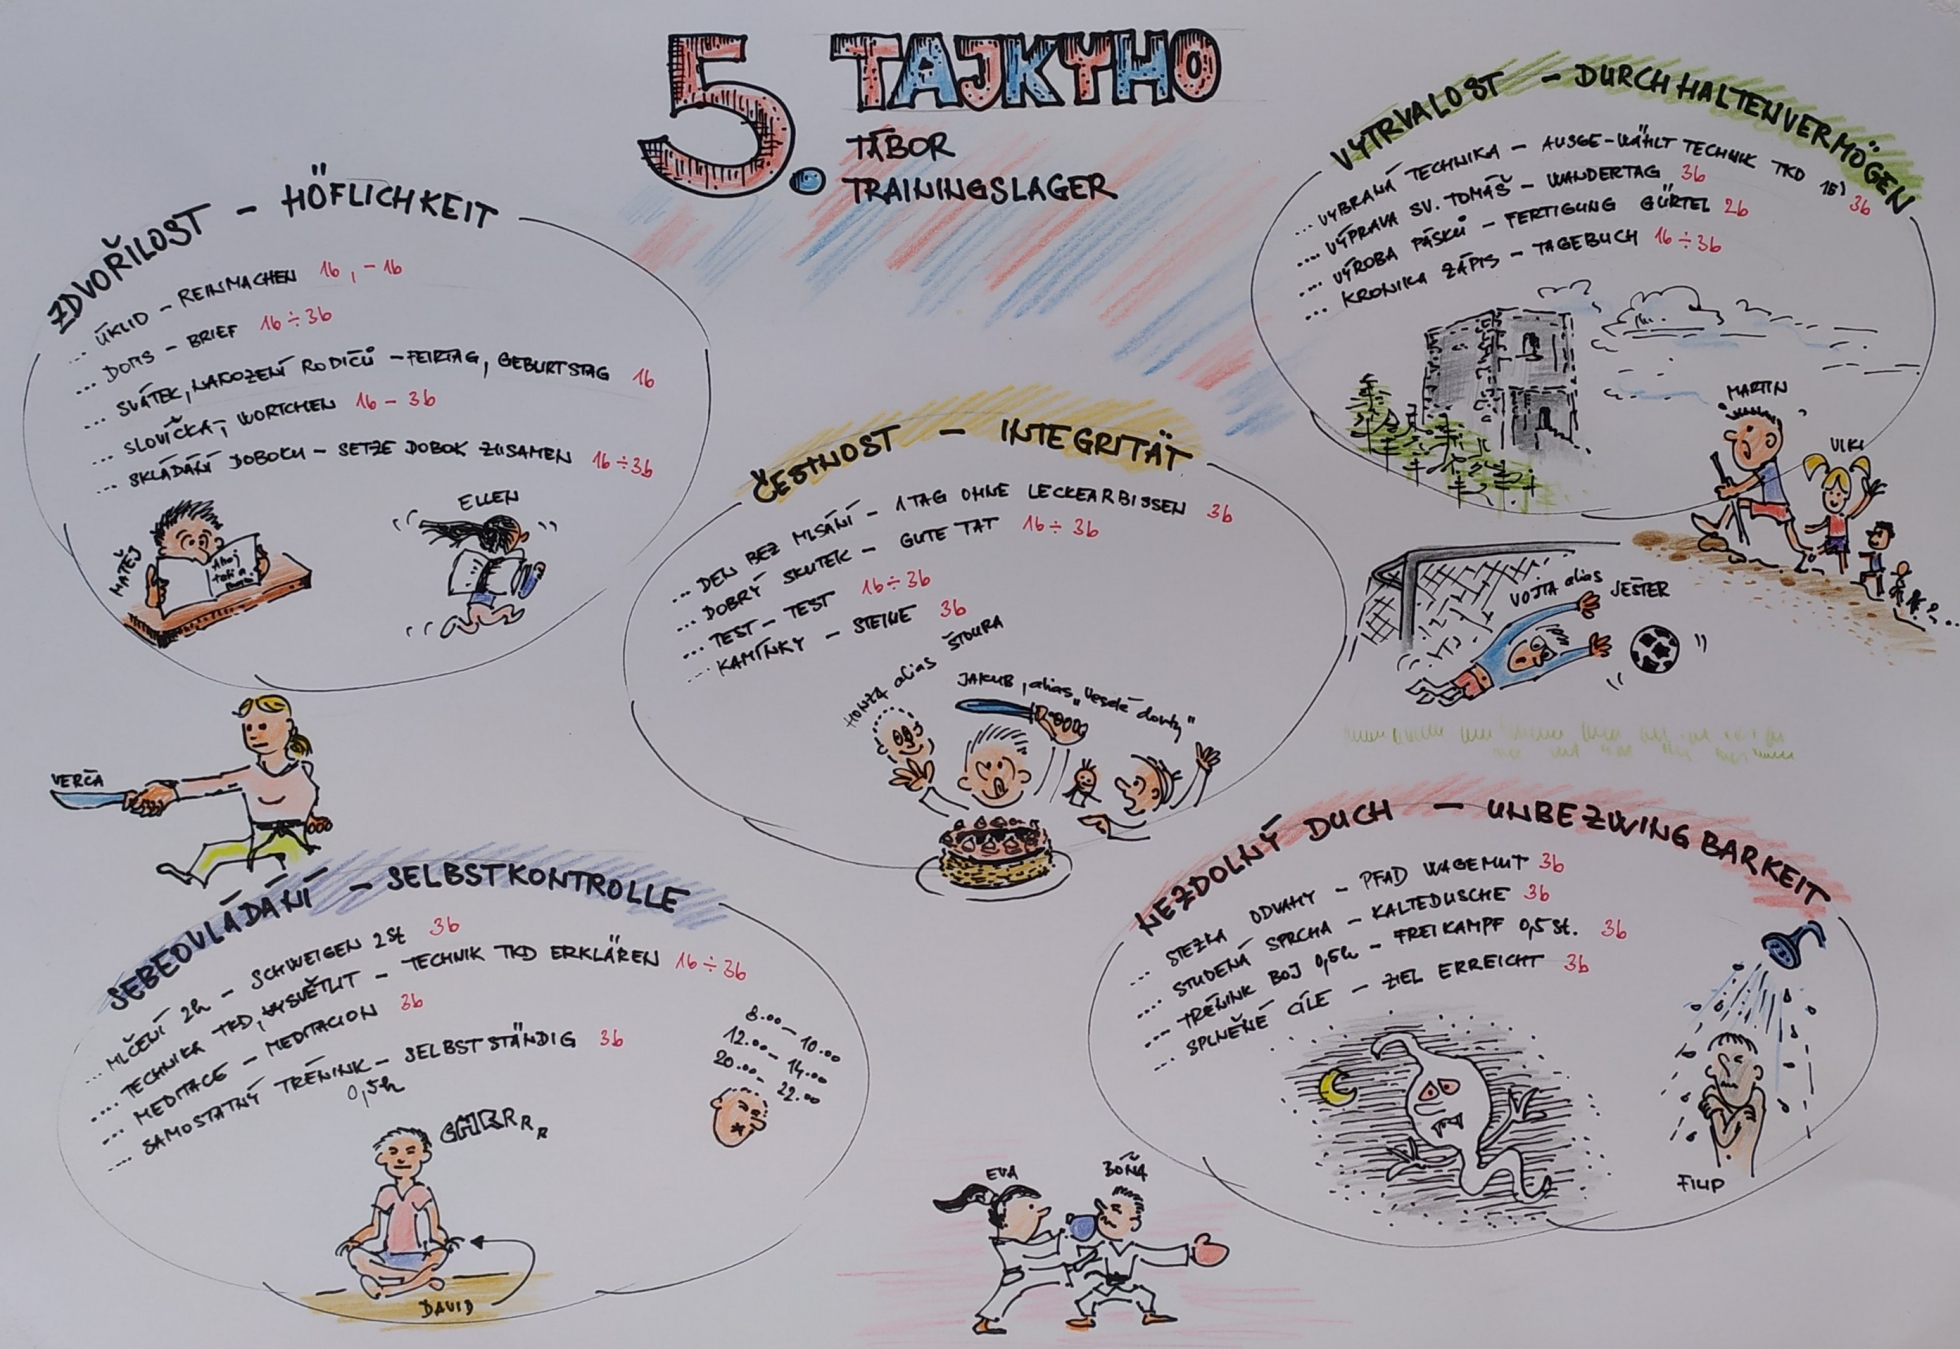 5. TAJKYHO
TÁBOR
TRAININGSLAGER
ZDVOŘILOST - HÖFLICHKEIT
... ÚKLID - REINMACHEN 1b, -1b
... DOPIS - BRIEF 1b ÷ 3b
... SVÁTEK, NAROZENÍ RODIČŮ - FEIRTAG, GEBURTSTAG 1b
... SLOVÍČKA - WORTCHEN 1b - 3b
... SKLÁDÁNÍ DOBOKU - SETZE DOBOK ZUSAMEN 1b ÷ 3b
MATĚJ
Ahoj
ELLEN
VÝTRVALOST - DURCHHALTENVERMÖGEN
... VYBRANÁ TECHNIKA - AUSGE-WÄHLT TECHNIK TKD 3b
... VÝPRAVA SV. TOMÁŠ - WANDERTAG 3b
... VÝROBA PÁSKŮ - FERTIGUNG GÜRTEL 2b
... KRONIKA ZÁPIS - TAGEBUCH 1b ÷ 3b
MARTIN
VIKI
VOJTA alias JEŠTER
ČESTNOST - INTEGRITÄT
... DEN BEZ MLSÁNÍ - 1 TAG OHNE LECKEARBISSEN 3b
... DOBRÝ SKUTEK - GUTE TAT 1b ÷ 3b
... TEST - TEST 1b ÷ 3b
... KAMÍNKY - STEINE 3b
HONZA alias ŠTOURA
JAKUB, alias „Veselé dorty"
VERČA
SEBEOVLÁDÁNÍ - SELBSTKONTROLLE
... MLČENÍ 2h - SCHWEIGEN 2St 3b
... TECHNIKA TKD, VYSVĚTLIT - TECHNIK TKD ERKLÄREN 1b ÷ 3b
... MEDITACE - MEDITACION 3b
... SAMOSTATNÝ TRÉNINK - SELBSTSTÄNDIG 3b
0,5h
8.00 - 10.00
12.00 - 14.00
20.00 - 22.00
CHRRRR
DAVID
NEZDOLNÝ DUCH - UNBEZWINGBARKEIT
... STEZKA ODVAHY - PFAD WAGEMUT 3b
... STUDENÁ SPRCHA - KALTEDUSCHE 3b
... TRÉNINK BOJ 0,5h - FREIKAMPF 0,5 St. 3b
... SPLNĚNÉ CÍLE - ZIEL ERREICHT 3b
FILIP
EVA
BOŇA